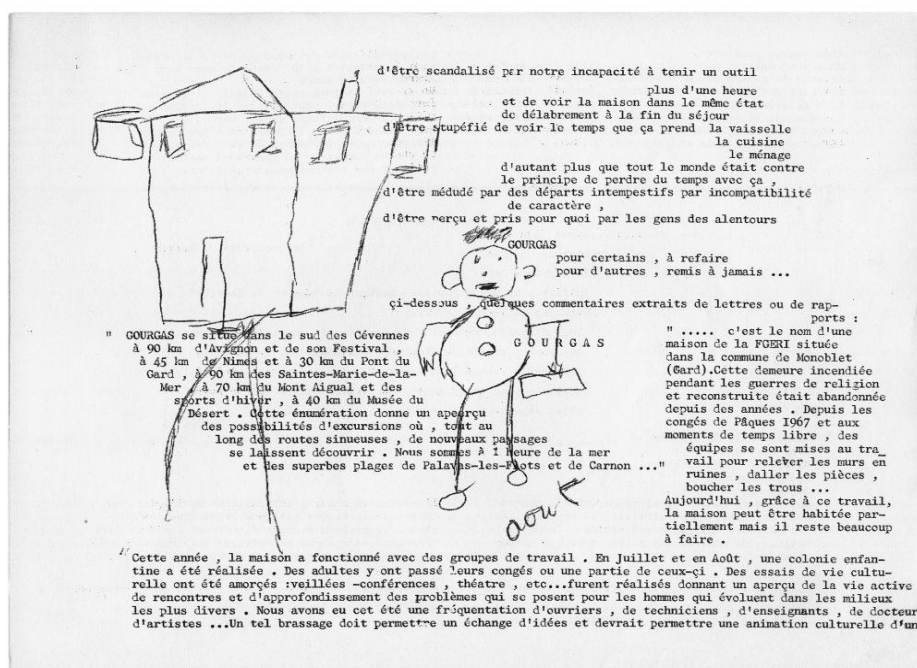 d'être scandalisé par notre incapacité à tenir un outil
plus d'une heure
et de voir la maison dans le même état
de délabrement à la fin du séjour
d'être stupéfié de voir le temps que ça prend la vaisselle
la cuisine
le ménage
d'autant plus que tout le monde était contre
le principe de perdre du temps avec ça ,
d'être médudé par des départs intempestifs par incompatibilité
de caractère ,
d'être perçu et pris pour quoi par les gens des alentours
GOURGAS
pour certains , à refaire
pour d'autres , remis à jamais ...
çi-dessous , quelques commentaires extraits de lettres ou de rap-
ports :
" GOURGAS se situe dans le sud des Cévennes
à 90 km d'Avignon et de son Festival ,
à 45 km de Nimes et à 30 km du Pont du
Gard , à 90 km des Saintes-Marie-de-la-
Mer , à 70 km du Mont Aigual et des
sports d'hiver , à 40 km du Musée du
Désert . Cette énumération donne un aperçu
des possibilités d'excursions où , tout au
long des routes sinueuses , de nouveaux paysages
se laissent découvrir . Nous sommes à 1 heure de la mer
et des superbes plages de Palavas-les-Flots et de Carnon ..."
GOURGAS
" ..... c'est le nom d'une
maison de la FGERI située
dans la commune de Monoblet
(Gard).Cette demeure incendiée
pendant les guerres de religion
et reconstruite était abandonnée
depuis des années . Depuis les
congés de Pâques I967 et aux
moments de temps libre , des
équipes se sont mises au tra_
vail pour relever les murs en
ruines , daller les pièces ,
boucher les trous ...
Aujourd'hui , grâce à ce travail,
la maison peut être habitée par-
tiellement mais il reste beaucoup
à faire .
aout
" Cette année , la maison a fonctionné avec des groupes de travail . En Juillet et en Août , une colonie enfan-
tine a été réalisée . Des adultes y ont passé leurs congés ou une partie de ceux-çi . Des essais de vie cultu-
relle ont été amorçés :veillées -conférences , théatre , etc...furent réalisés donnant un aperçu de la vie active
de rencontres et d'approfondissement des problèmes qui se posent pour les hommes qui évoluent dans les milieux
les plus divers . Nous avons eu cet été une fréquentation d'ouvriers , de techniciens , d'enseignants , de docteur
d'artistes ...Un tel brassage doit permettre un échange d'idées et devrait permettre une animation culturelle d'un